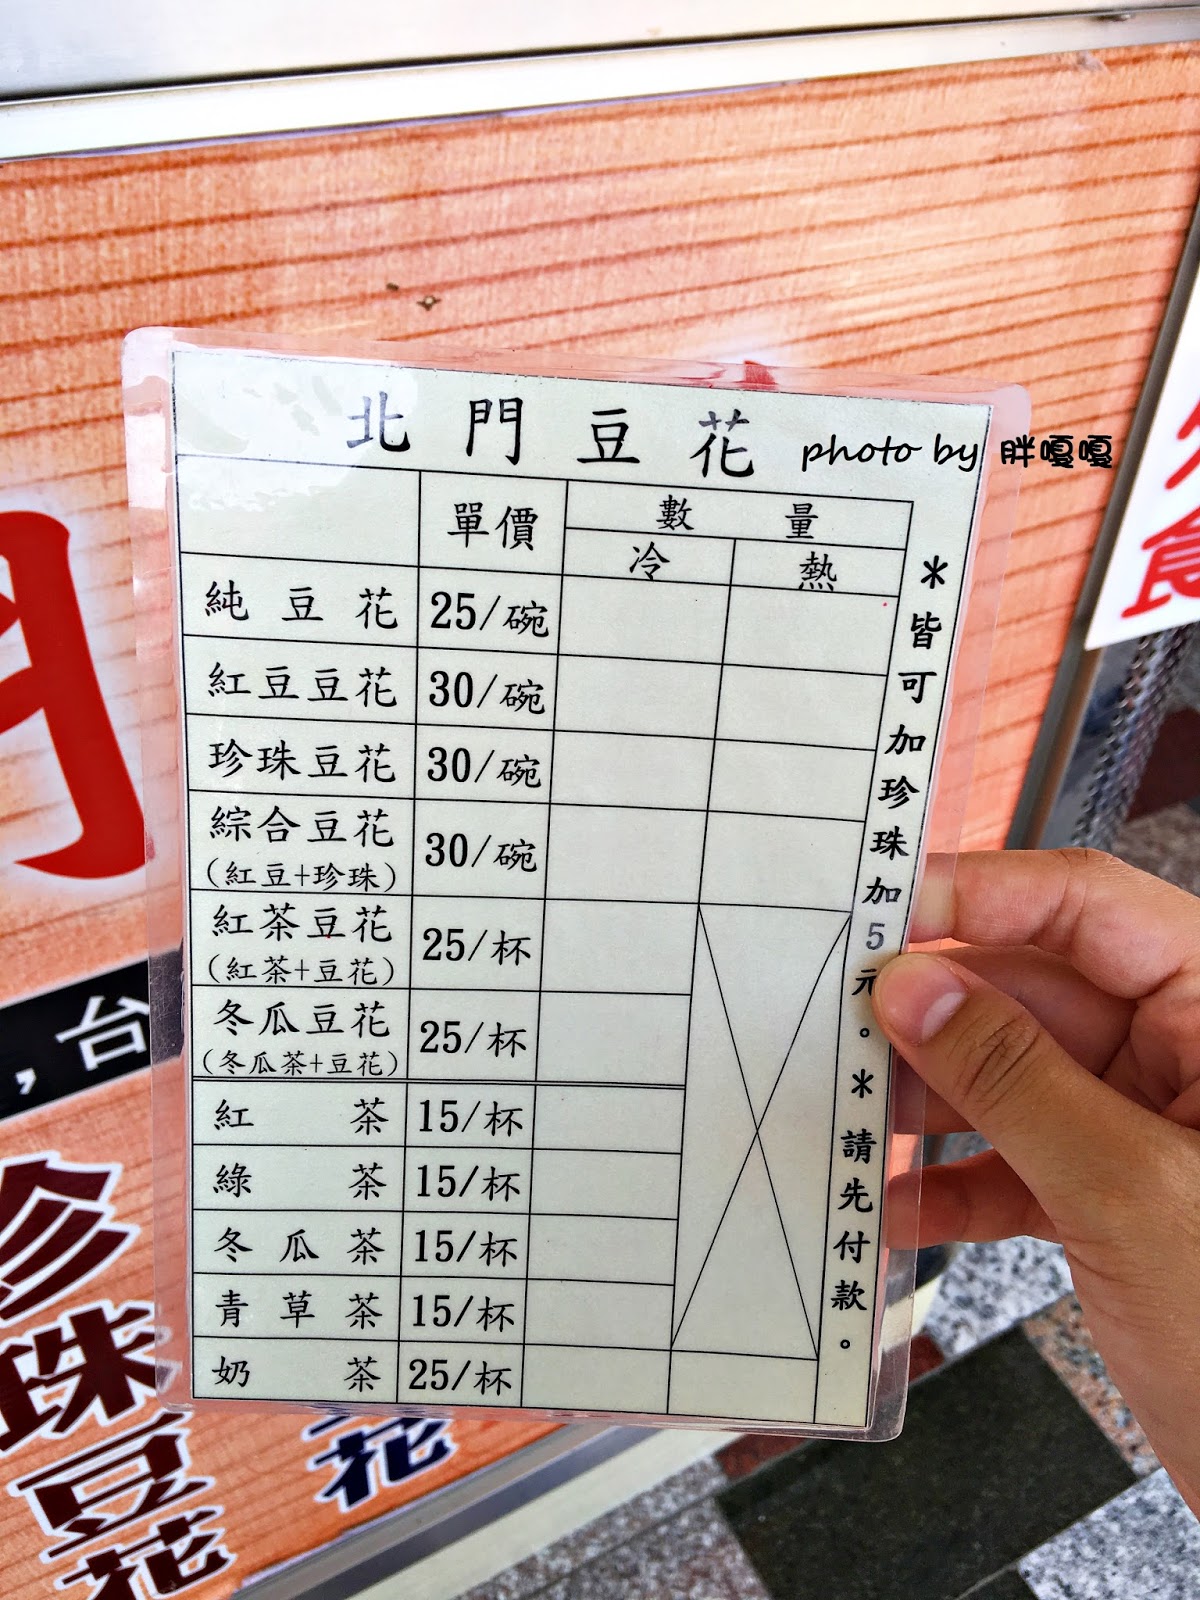 北門豆花
photo by 胖嘎嘎
單價 數量
冷 熱
純豆花 25/碗
紅豆豆花 30/碗
珍珠豆花 30/碗
綜合豆花 30/碗
(紅豆+珍珠)
紅茶豆花 25/杯
(紅茶+豆花)
冬瓜豆花 25/杯
(冬瓜茶+豆花)
紅茶 15/杯
綠茶 15/杯
冬瓜茶 15/杯
青草茶 15/杯
奶茶 25/杯
*皆可加珍珠加5元。*請先付款。
門
,台
珍珠豆花
花
食